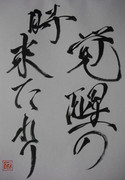 覚醒の
時来たれり